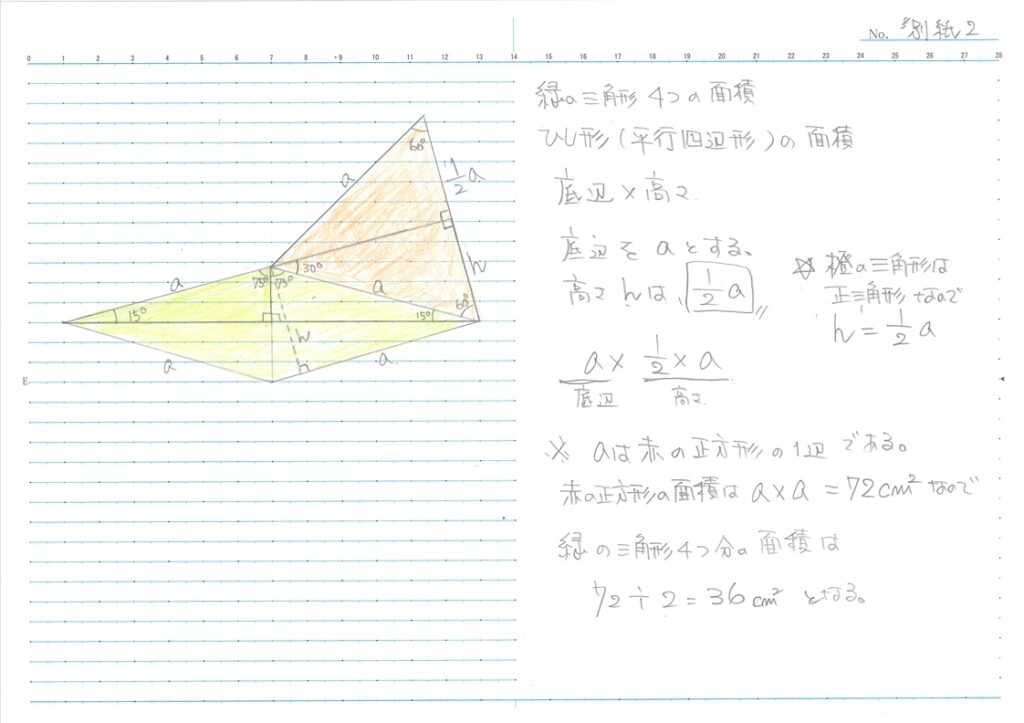 No. 別紙2
0 1 2 3 4 5 6 7 8 9 10 11 12 13 14 15 16 17 18 19 20 21 22 23 24 25 26 27 28
緑の三角形4つの面積
ひし形(平行四辺形)の面積
底辺×高さ
底辺をaとする。
高さhは、1/2a
☆橙の三角形は
正三角形なので
h=1/2a
a×1/2×a
底辺 高さ
※ aは赤の正方形の1辺である。
赤の正方形の面積は a×a=72cm²なので
緑の三角形4つ分の面積は
72÷2=36cm² となる。
60°
a
1/2a
30°
h
60°
a
75° 75°
a
15°
15°
h
a
a
E